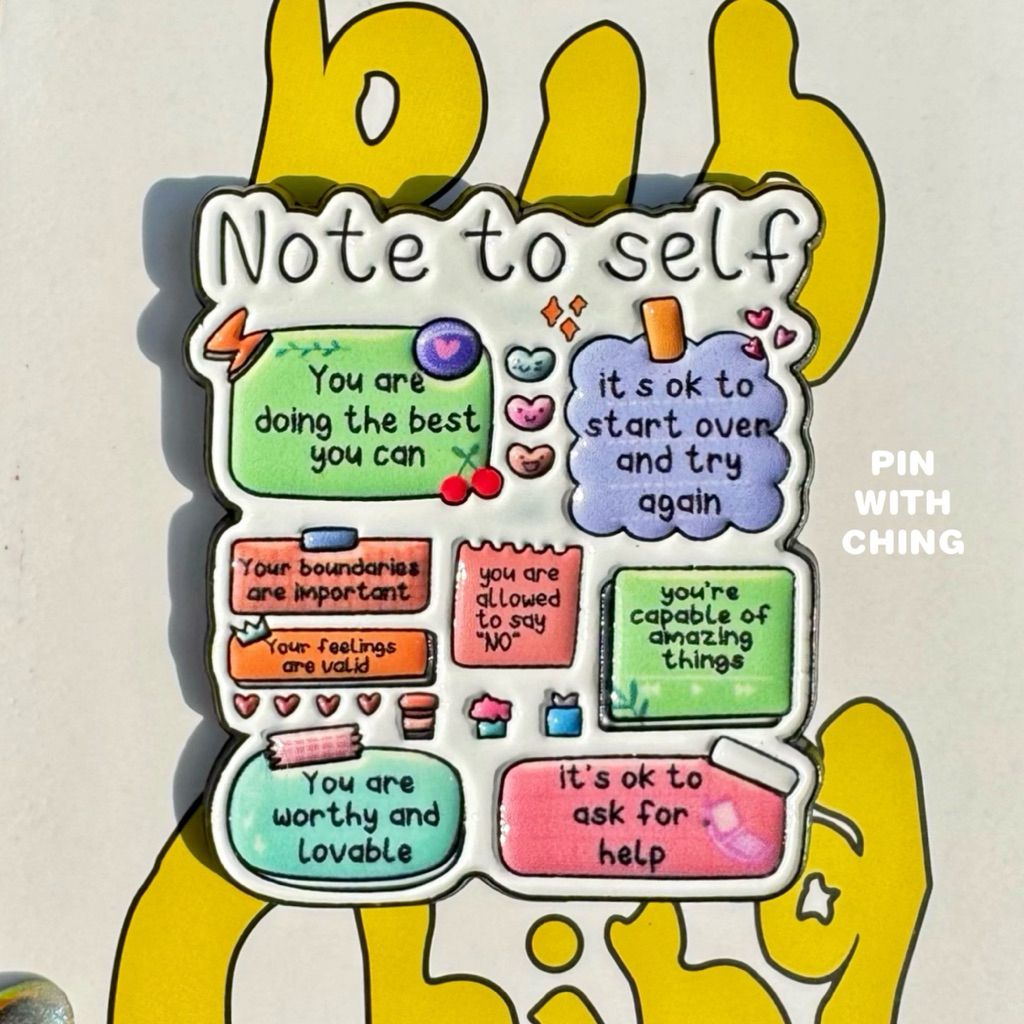 Note to self
You are
doing the best
you can
it s ok to
start over
and try
again
Your boundaries
are important
Your feelings
are valid
you are
allowed
to say
"NO"
you're
capable of
amazing
things
You are
worthy and
lovable
it's ok to
ask for
help
PIN
WITH
CHING